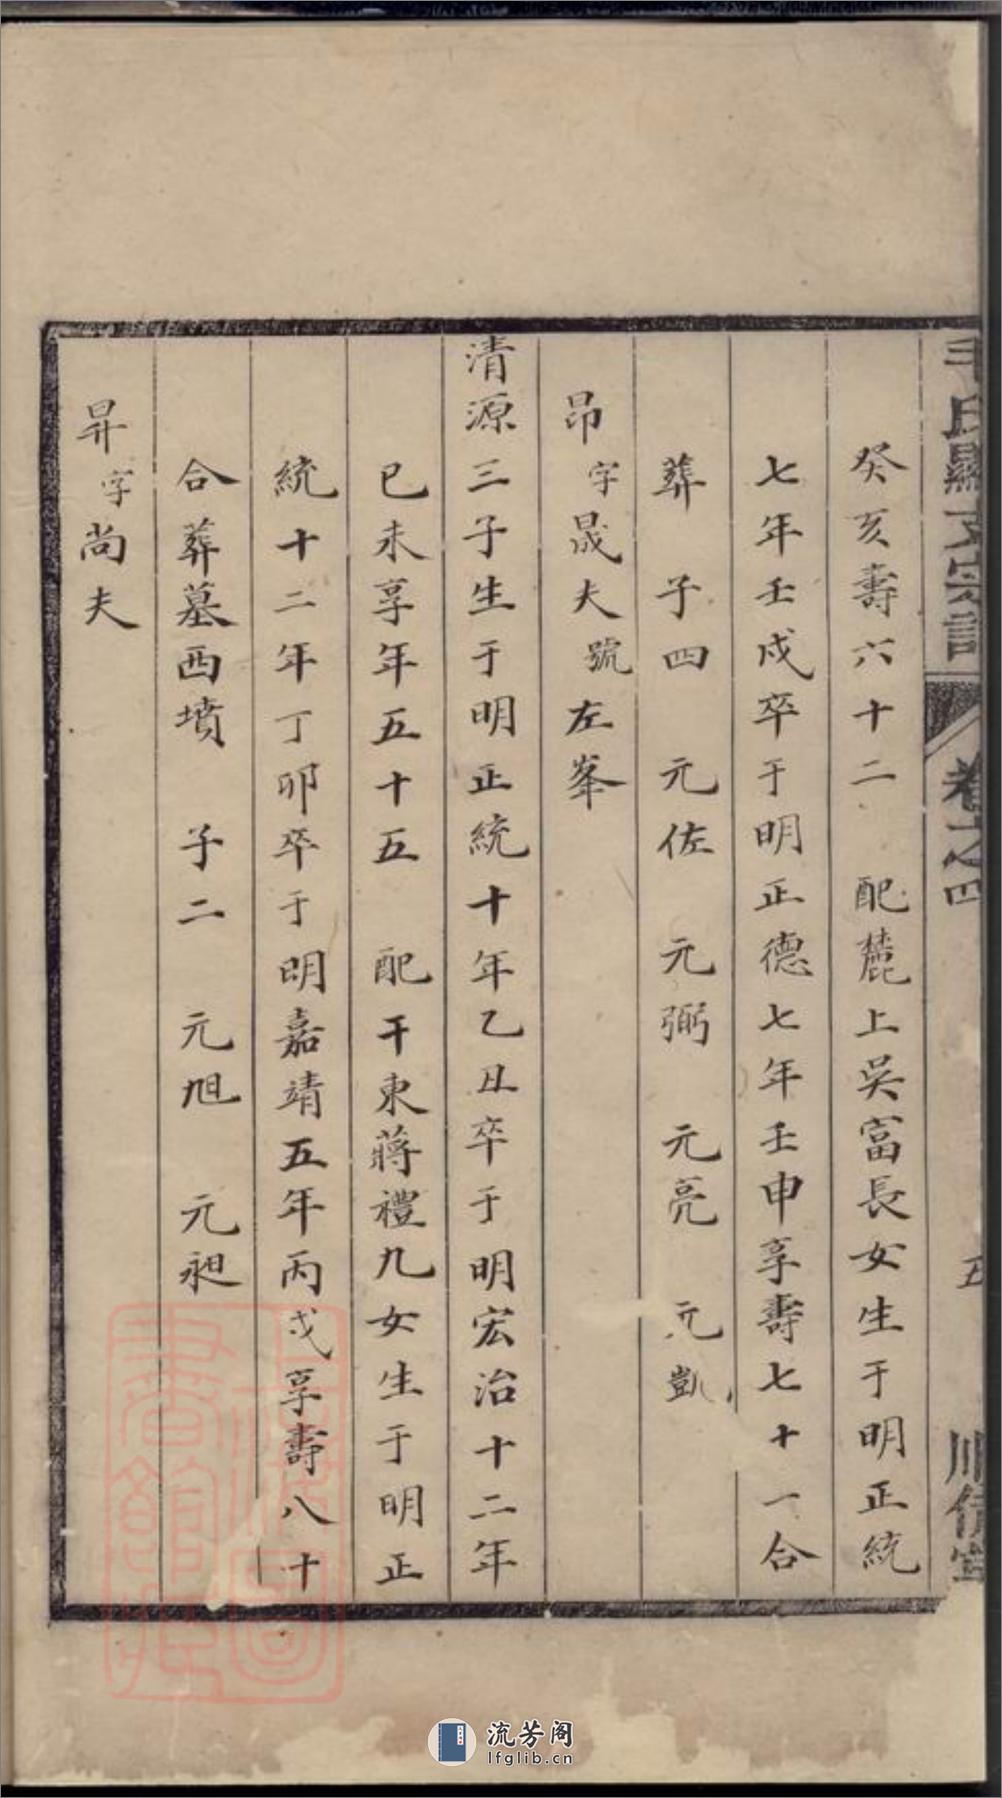 氏顯支宗譜 卷之四 五
癸亥壽六十二 配麓上吳富長女生于明正統
七年壬戌卒于明正德七年壬申享壽七十一合
葬 子四 元佐 元弼 元亮 元凱
昂字晟夫號左峯
清源三子生于明正統十年乙丑卒于明宏治十二年
己未享年五十五 配干東蔣禮九女生于明正
統十二年丁卯卒于明嘉靖五年丙戌享壽八十
合葬墓西墳 子二 元旭 元昶
昇字尚夫
上海圖
書館藏
流芳阁
lfglib.cn